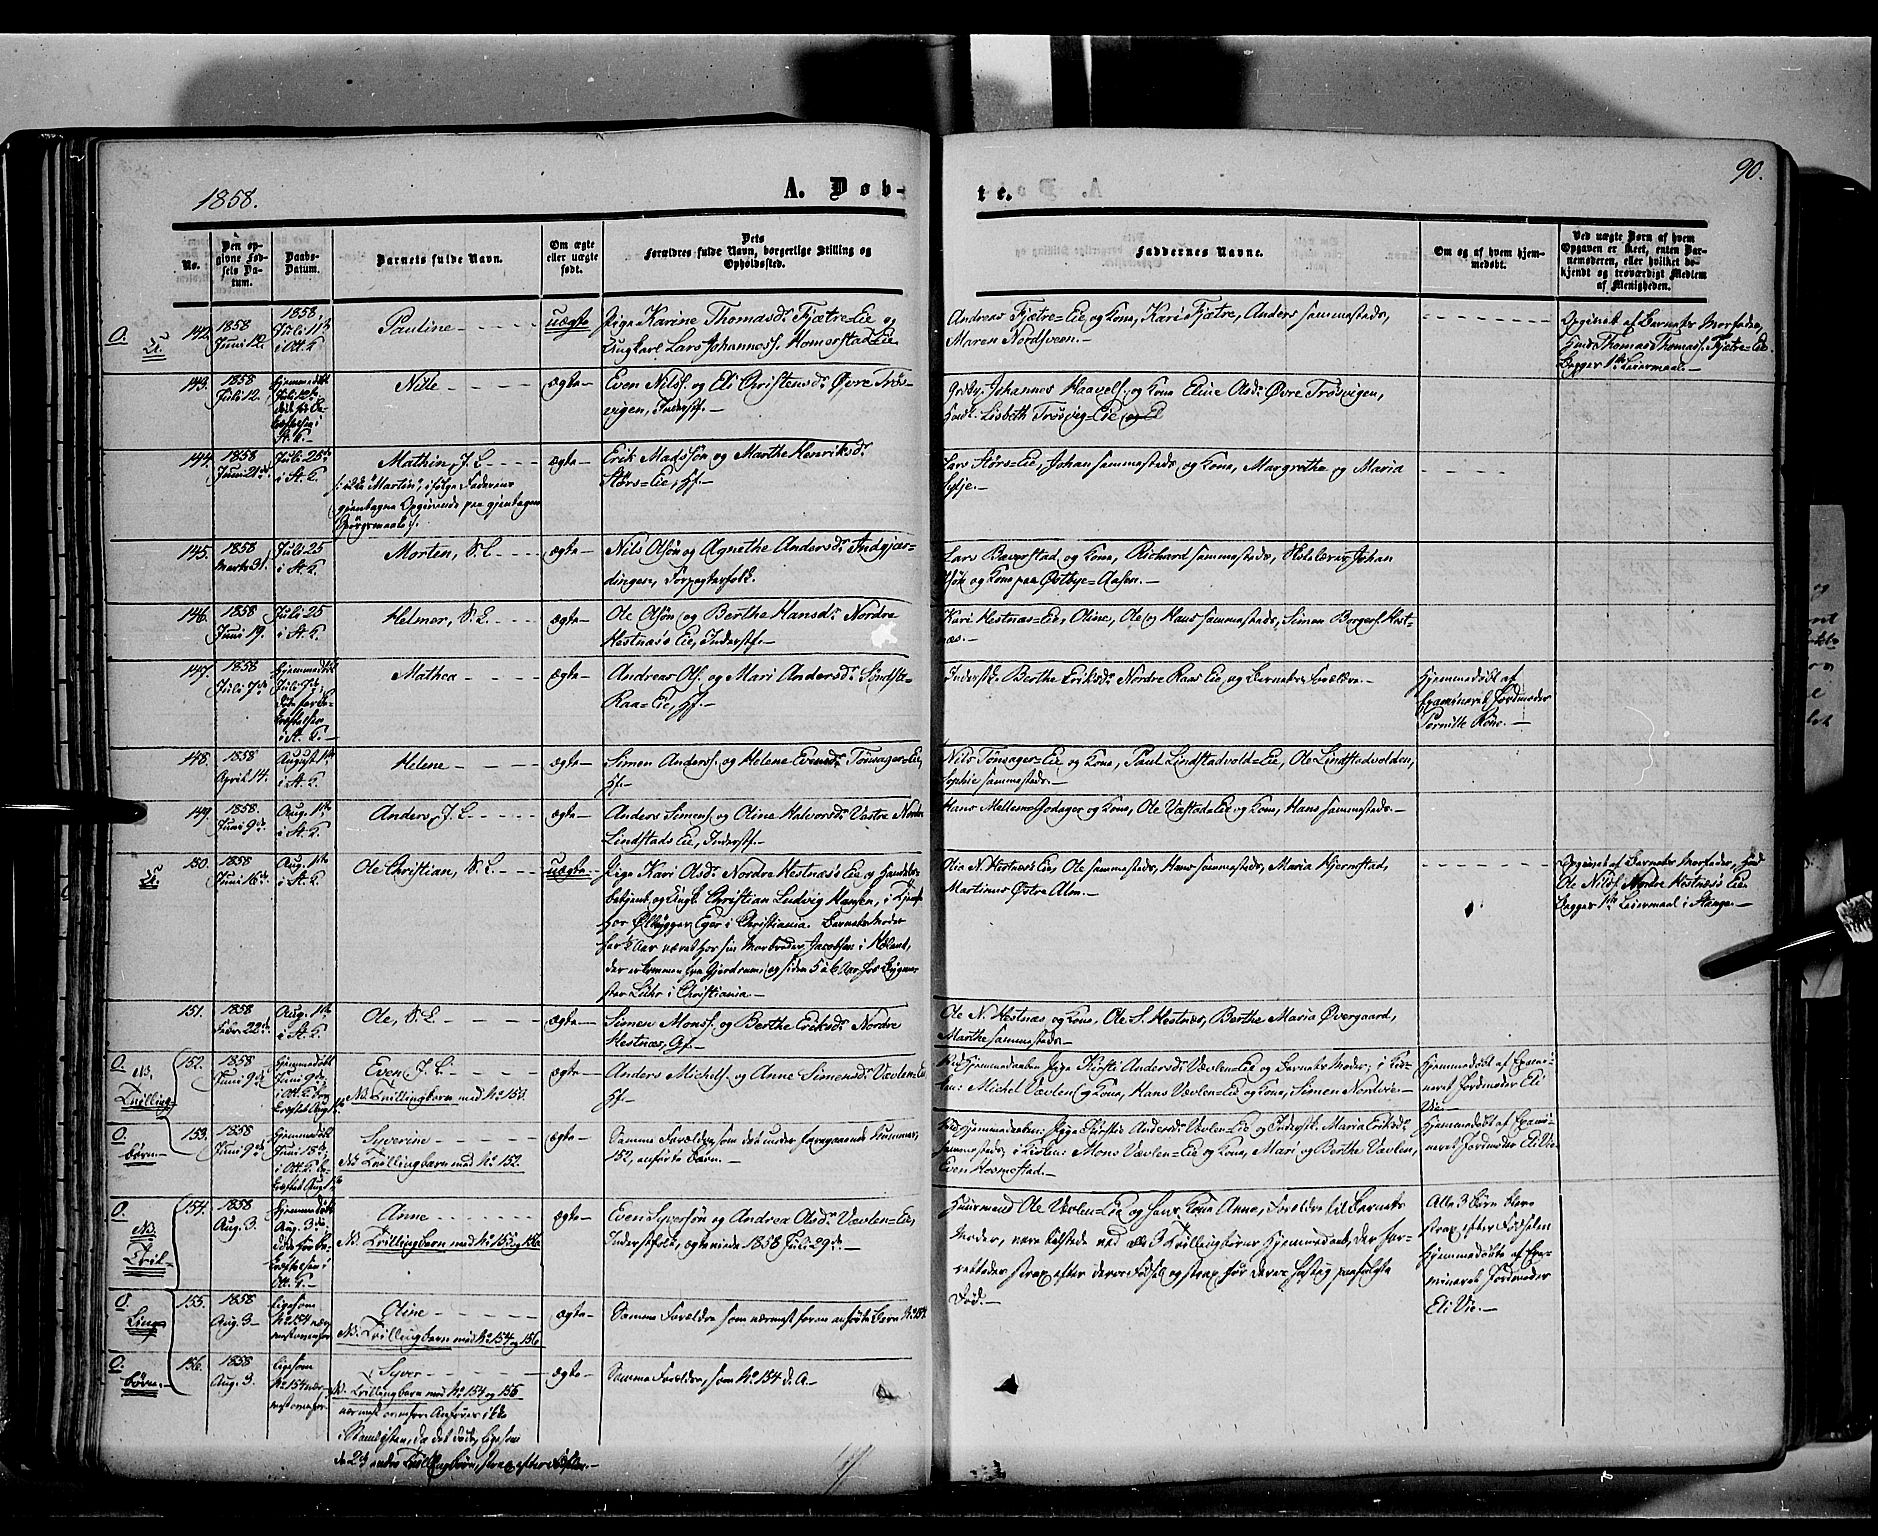 1858.
A. Døb-
te.
90.
No.
Den op-
givne Fød-
sels Da-
tum.
Daabs-
Datum.
Barnets fulde Navn.
Om ægte
eller uægte
født.
Dets
Forældres fulde Navn, borgerlige Stilling og
Opholdssted.
Faddernes Navne.
Om og af hvem hjem-
medøbt.
Ved uægte Børn af hvem
Opgaven er skeet, enten Bar-
nemoderen, eller hvilket be-
kjendt og troværdigt Medlem
af Menigheden.
O. U. 142. 1858 Juni 12.
1858, Juli 11te i Ott. K.
Pauline
uægte
Pige Karine Thomasdr. Fjætre-Eie og
Ungkarl Lars Johanness. Homerstad Eie
Andreas Fjætre-Eie og Kone, Kari Fjætre, Anders sammesteds,
Maren Nordlien.
Opgivet af Barnets Morfader,
Huusm. Thomas Thomass. Fjætre-Eie
Begges 1ste Leiermaal.
143. 1858 Juli 12.
Hjemmedøbt
Juli 12te
i St. K.
Nille
ægte
Even Nils. og Eli Christensdr. Øvre Trøs-
vigen, Inderstf.
Johannes Haavels. og Kone Eline Olsdr. Øvre Trøsvigen,
Lisbeth Trøsvig-Eie
144. 1858 Juni 21de
Juli 25de i St. K.
Mathin, J. L.
(: ikke "Martin", ifølge Faderens
gjentagne Opgivende paa gjentagen
Spørgsmaal :).
ægte
Erik Madssøn og Marthe Henriksdr.
Størs-Eie, Hf.
Lars Størs-Eie, Johan sammesteds og Kone, Margrethe og Maria
145. 1858 Marts 31.
Juli 25 i St. K.
Morten, S. L.
ægte
Nils Olsøn og Agnethe Andersdr. Indgjær-
dingen, Forpagterfolk.
Lars Baverstad og Kone, Richard sammesteds, Johan
og Kone paa Østbye-Aasen.
146. 1858 Juni 19.
Juli 25 i St. K.
Helmer, S. L.
ægte
Ole Olsøn og Berthe Hansdr. Nordre
Hestnæs Eie, Inderstf.
Kari Hestnæs-Eie, Oline, Ole og Hans sammesteds, Simen Borgers. Hest-
næs.
147. 1858 Juli 7de
Hjemmedøbt
Juli 7de
i St. K.
Mathea
ægte
Andreas Ols. og Mari Andersdr. Søndste-
Raa-Eie, Hf.
Inderstk. Berthe Eriksdr. Nordre Raas Eie, og Barnets Forældre.
Hjemmedøbt af
Examineret Jordmoder
Pernille Röne.
148. 1858 April 14.
August 1ste i St. K.
Helene
ægte
Simen Anders. og Helene Evensdr. Tønsager-Eie,
Hf.
Nils Tønsager-Eie og Kone, Paul Lindstadvold-Eie, Ole Lindstadvolden,
Sophie sammesteds.
149. 1858. Juni 9de
Aug. 1ste i St. K.
Anders, J. L.
ægte
Anders Simens. og Oline Halvorsdr. Vestre Nordre
Lindstads Eie, Inderstf.
Hans Mellem-Godager og Kone, Ole Eie og Kone, Hans sammesteds.
U. 150. 1858 Juni 16de
Aug. 1ste i St. K.
Ole Christian, S. L.
uægte
Pige Kari Olsdr. Nordre Hestnæs Eie og Handels-
betjent og Ungk. Christian Ludvig Hansen,
hos Ølbrygger Eger i Christiania. Barnets Moder
har Aar været hos sin Morbroder Jacobsen i Høland,
der er kommen fra Gjerdrum, og siden 5 á 6 Aar hos
i Christiania.
Olia N. Hestnæs Eie, Ole sammesteds, Hans sammesteds, Maria Hjernstad,
Martinus Østre Alm.
Opgivet af Barnets Morfader,
Ole Nils. Nordre Hestnæs Eie.
Begges 1ste Leiermaal i Stange.
151. 1858 Febr. 22de
Aug. 1ste i St. K.
Ole, S. L.
ægte
Simen Mons. og Berthe Eriksdr. Nordre
Hestnæs, Gf.
Ole N. Hestnæs og Kone, Ole S. Hestnæs, Berthe Maria Øvergaard,
Marthe sammesteds
O. NB. Tvilling-
152. 1858 Juni 9de
Hjemmedøbt
Juni 9de
i Ott. K.
Even J. L.
NB. Tvillingbarn med No 153.
ægte
Anders Michels. og Anne Simensdr. Vævlen-Eie
Hf.
Ved Hjemmedaaben Pige Kirsti Andersdr. Vævlen-Eie og Barnets Moder; i Kir-
ken: Michel Vævlen og Kone, Hans Vævlen-Eie og Kone, Simen Nordvie.
Hjemmedøbt af Exami-
neret Jordmoder Eli
Vie.
O. børn.
153. 1858 Juni 9de
Hjemmedøbt
Syverine
NB. Tvillingbarn med No 152.
ægte
Samme Forældre, som det under foregaaende Nummer,
152, anførte Barn.
Ved Hjemmedaaben: Pige Kirstie Andersdr. Vævlen-Eie og Inderstk. Maria Eriksdr.
sammesteds; i Kirken: Mons Vævlen-Eie og Kone, Mari og Berthe Vævlen,
Even Hosmestad.
Hjemmedøbt af Exami-
neret Jordmoder Eli Vie
O. NB. Tril-
154. 1858 Aug. 3.
Hjemmedøbt
Aug. 3de
Ott. K.
Anne
NB. Trillingbarn med No 155 og 156
ægte
Even Syversøn og Andrea Olsdr. Vævlen-Eie,
Inderstfolk, ægteviede 1858 Juli 29de.
Huusmand Ole Vævlen-Eie og hans Kone Anne, Forældre til Barnets
Moder, vare tilstede ved alle 3 Trillingbørns Hjemmedaab, der for-
rettedes strax efter deres Fødsel og strax før deres paafulgte
Død.
Alle 3 Børn bleve
strax efter Fødselen
hjemmedøbte af Exa-
mineret Jordmoder
Eli Vie.
O. ling-
155. 1858 Aug. 3
Ligesom
No 154 nær-
mest ovenfor
Oline
NB. Trillingbarn med No 154 og 156
ægte
Samme Forældre som nærmest foran anførte Barn No 154
O. børn.
156. 1858 Aug. 3.
Ligesom
No 154 nær-
mest ovenfor
Syver
NB. Trillingbarn med No 154 og 155
nærmest ovenfor. Anføres ikke
da det døde, ligesom
de 2de andre Trillingbørn, strax efter Fødselen.
ægte
Samme Forældre, som No 154 d. A.